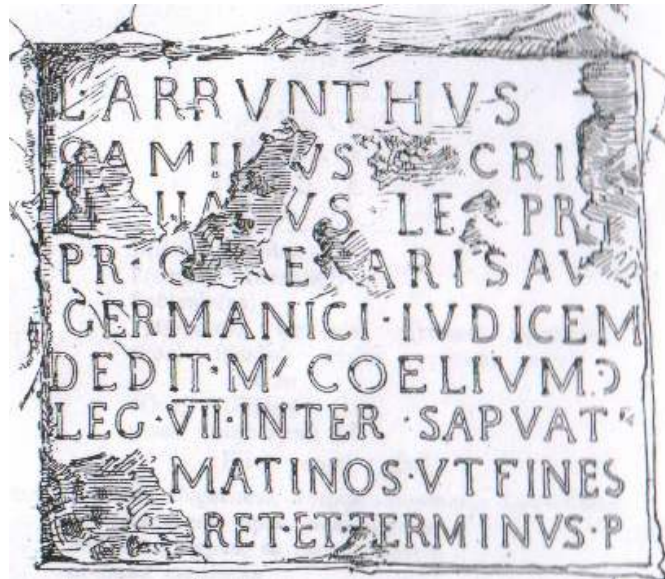 L·ARRVNTHVS
CRI
VS LE PR
PR· ARIS AV
GERMANICI·IVDICEM
DEDIT·M' COELIVM Ɔ
LEG·VII·INTER·SAPVAT
MATINOS·VT FINES
RET·ET·TERMINVS·P